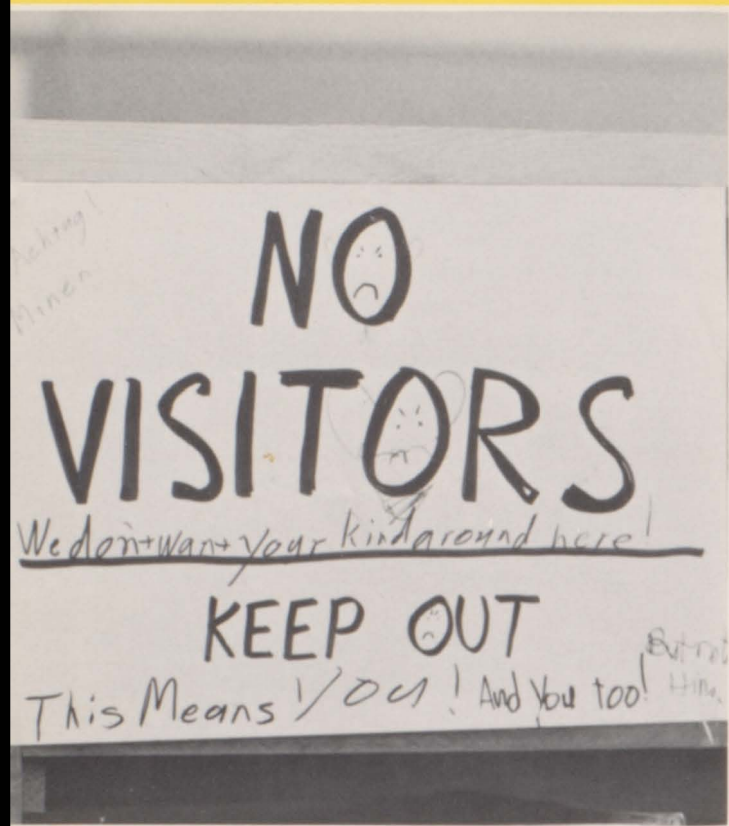 Achtung!
Minen
NO
VISITORS
We don't want your kind around here!
KEEP OUT
This Means You! And You too!
But not
Him.